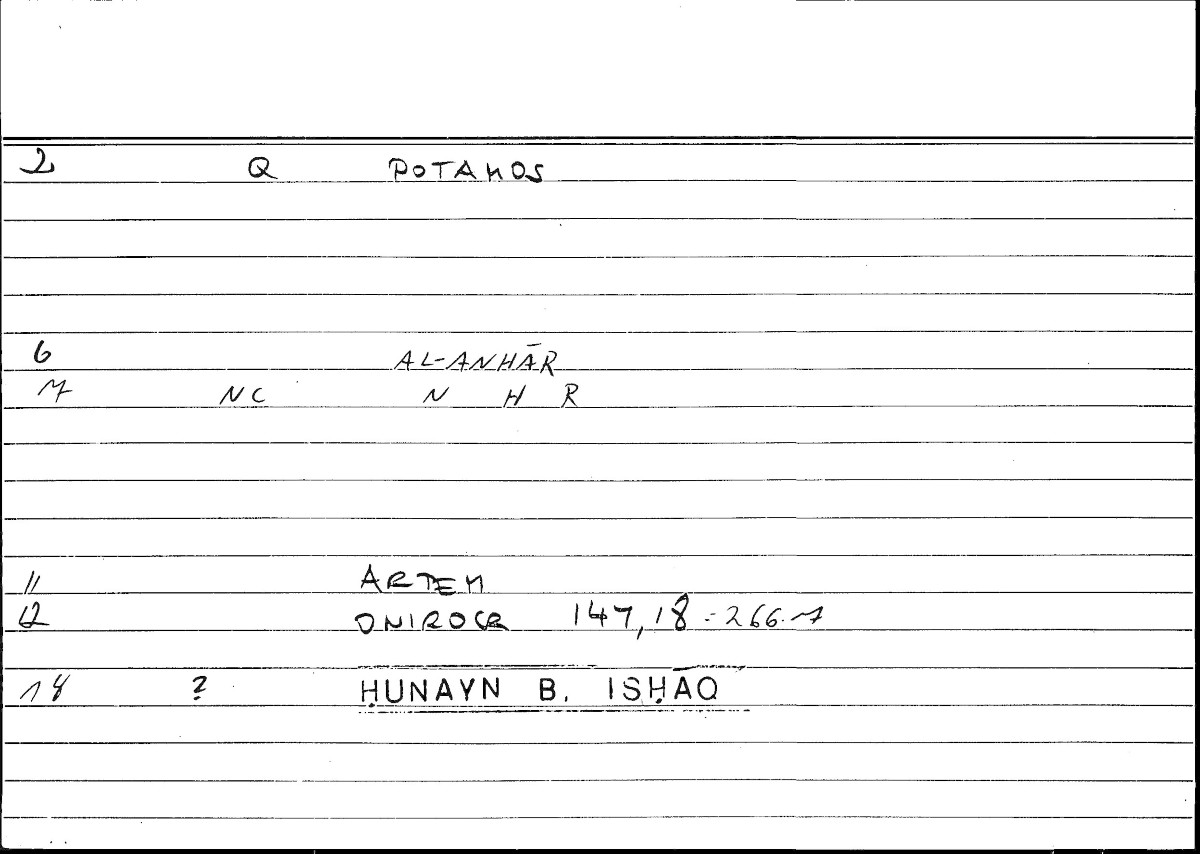 2 Q POTAMOS
6 AL-ANHĀR
7 NC N H R
11 ARTEM
12 ONIROCR 147,18 = 266.7
18 ? ḤUNAYN B. ISḤĀQ